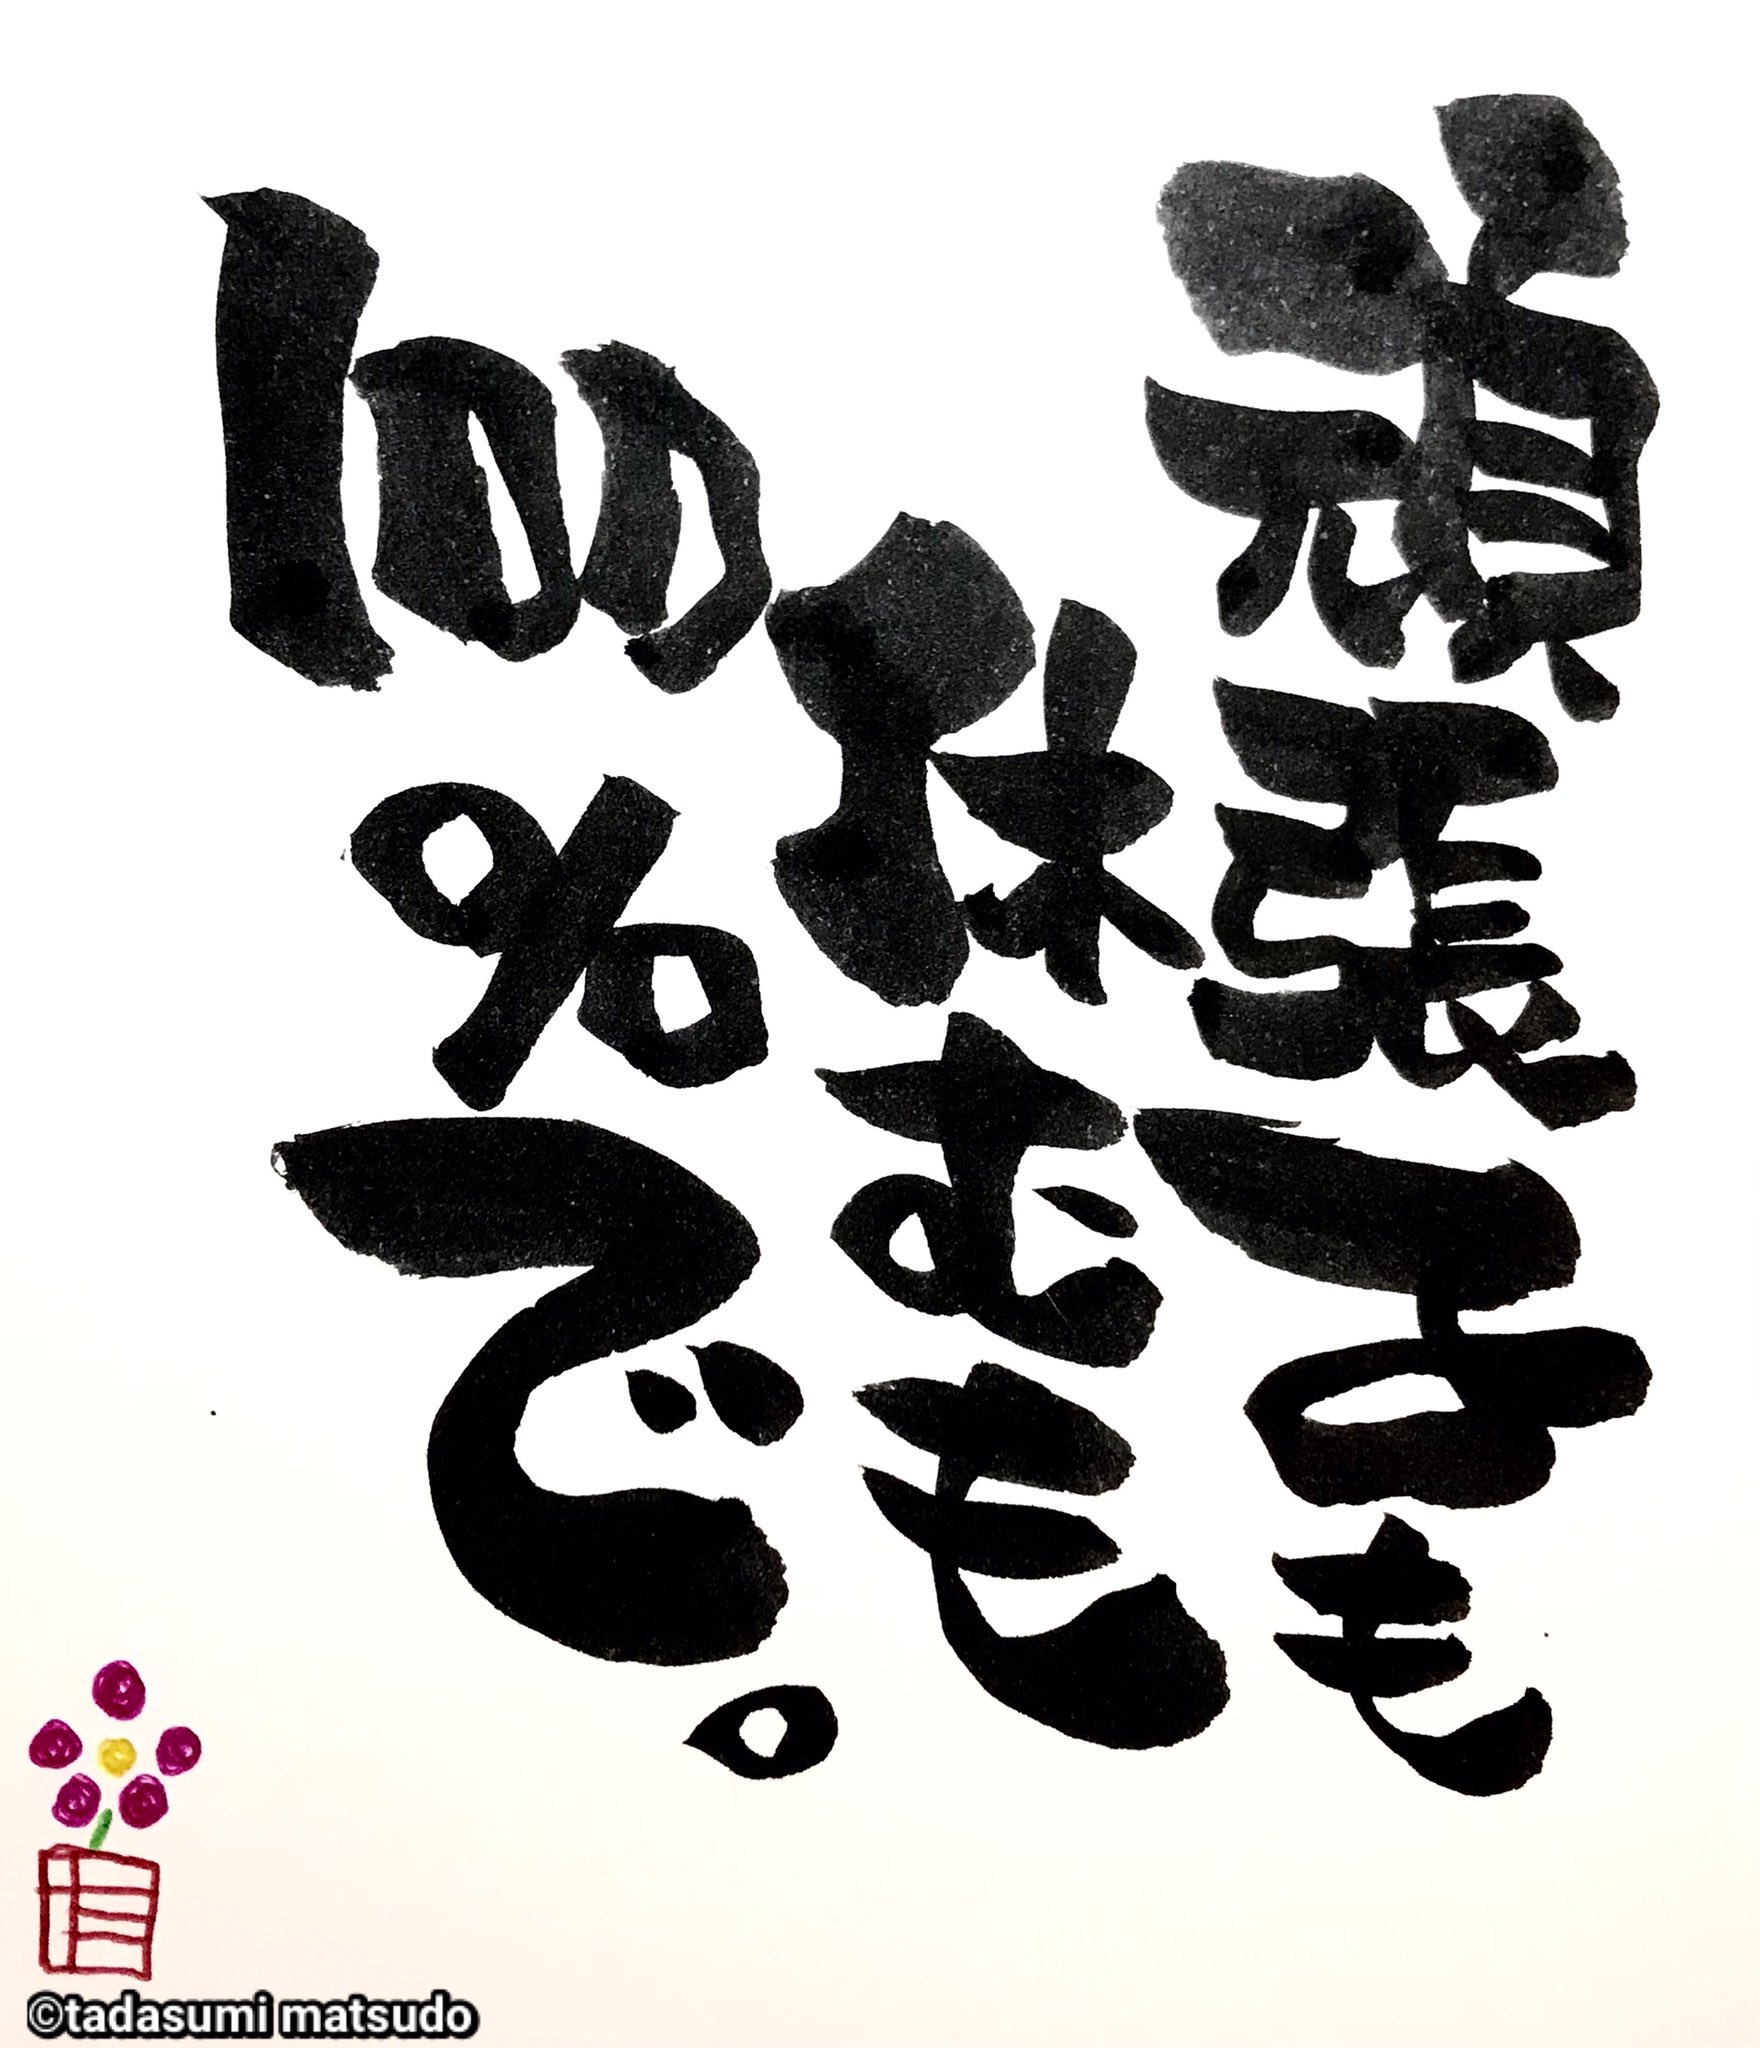 頑張るも
休むも
100%で。
©tadasumi matsudo